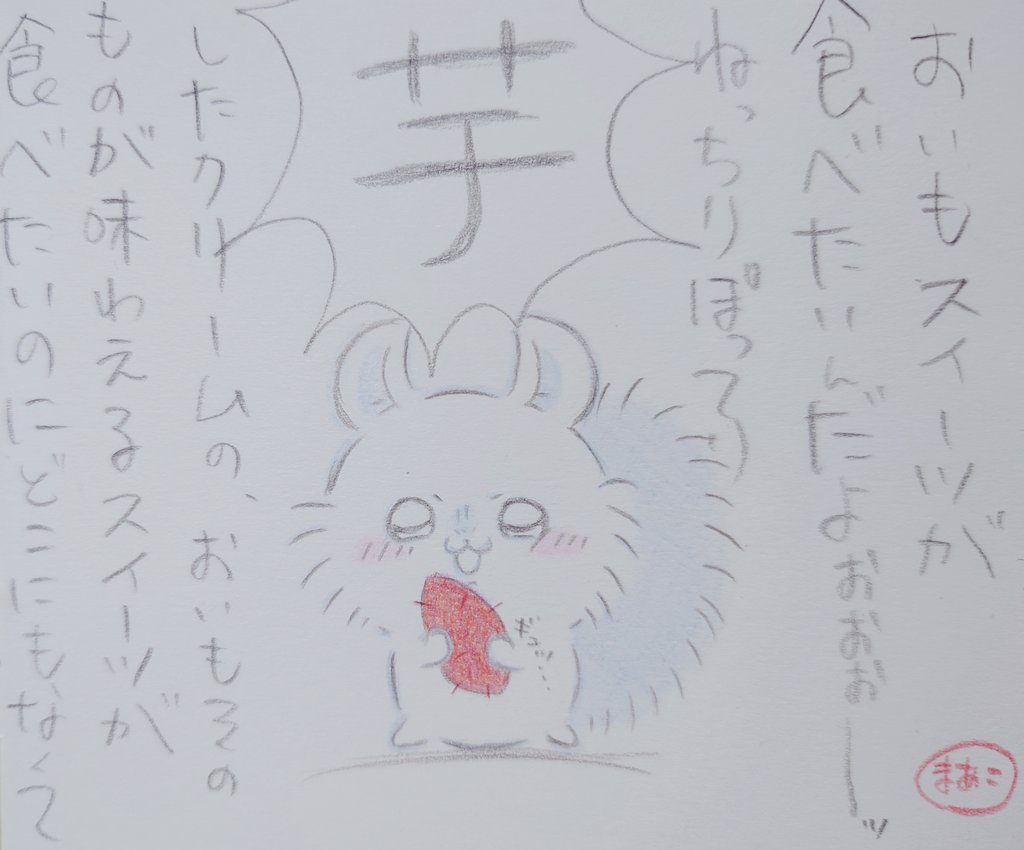 おいもスイーツが
食べたいんだよおおおーッ
ねっちりぽってり
芋
したクリームの、おいもその
ものが味わえるスイーツが
食べたいのにどこにもなくて
ギュッ…
まあこ